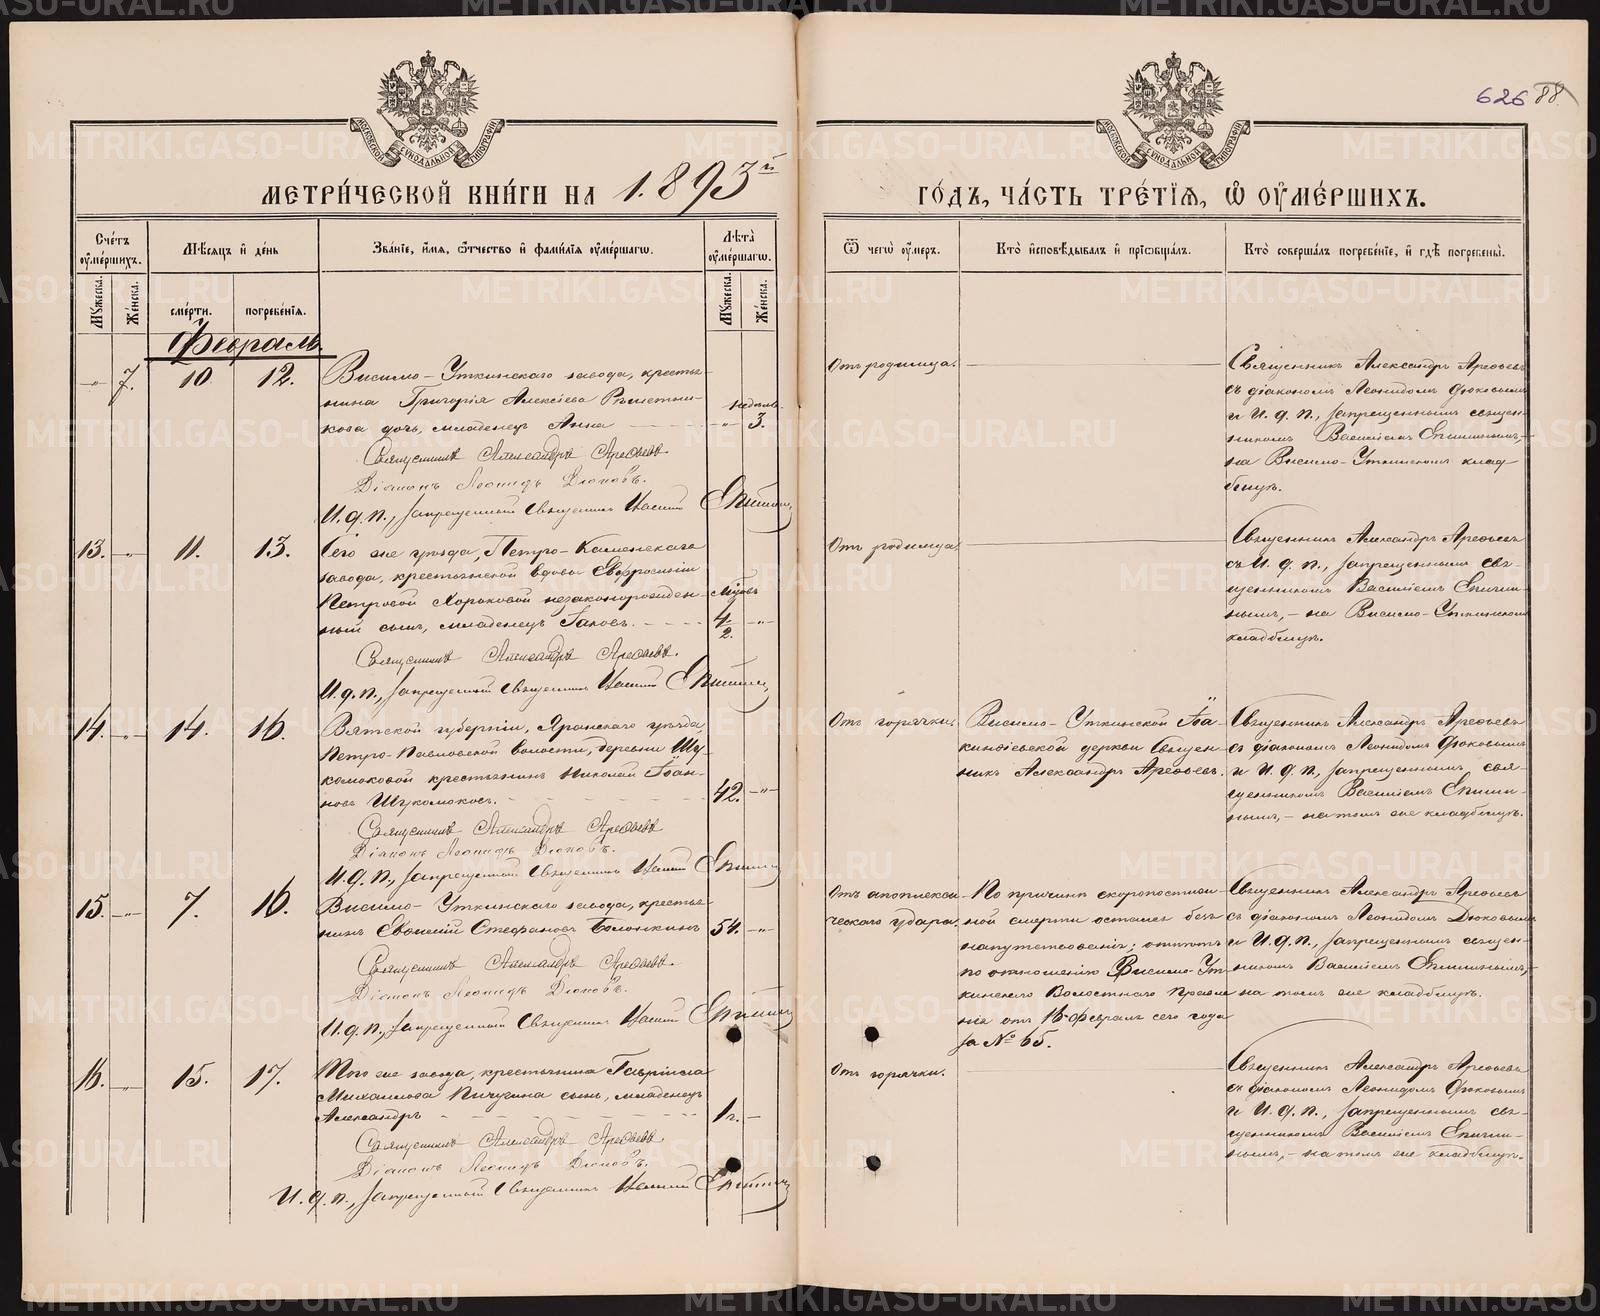 626 88
МЕТРИ́ЧЕСКОЙ КНИ́ГИ НА 1893й ГО́ДЪ, ЧА́СТЬ ТРЕ́ТІѦ, Ѽ ОУ҆МЕ́РШИХЪ.
Сче́тъ оу҆ме́ршихъ.
Мꙋжеска.
Же́нска.
Мѣ́сѧцъ и҆ де́нь
сме́рти.
погребе́нїѧ.
Зва́нїе, и҆́мѧ, ѻ҆́тчество и҆ фами́лїѧ оу҆ме́ршагѡ.
Лѣ́та оу҆ме́ршагѡ.
Мꙋжеска.
Же́нска.
Ѿ чегѡ̀ оу҆́меръ.
Кто̀ и҆сповѣ́дывалъ и҆ прїѡбща́лъ.
Кто̀ соверша́лъ погребе́нїе, и҆ гдѣ̀ погребены̀.
Февраль.
-"- 7. 10 12.
Висимо-Уткинскаго завода, крестья-
нина Григорія Алексіева Рѣшетни-
кова дочь, младенецъ Анна
недѣль
" 3.
Священникъ Александръ Арефьевъ.
Діаконъ Леонидъ Дюковъ.
И. д. п., запрещенный священникъ Василій Епишинъ
Отъ родимца.
Священникъ Александръ Арефьевъ
съ діакономъ Леонидомъ Дюковымъ
и И. д. п., запрещеннымъ священ-
никомъ Василіемъ Епишинымъ,-
на Висимо-Уткинскомъ клад-
бищѣ.
13. -"- 11. 13.
Сего же уѣзда, Петро-Каменскаго
завода, крестьянской вдовы Евфросиніи
Петровой Хороковой незаконорожден-
ный сынъ, младенецъ Іаковъ.
Мѣсяцъ
4/2. -"-
Священникъ Александръ Арефьевъ.
И. д. п., запрещенный священникъ Василій Епишинъ
Отъ родимца.
Священникъ Александръ Арефьевъ
съ И. д. п., запрещеннымъ свя-
щенникомъ Василіемъ Епиши-
нымъ,- на Висимо-Уткинскомъ
кладбищѣ.
14. -"- 14. 16.
Вятской губерніи, Яранскаго уѣзда,
Петро-Павловской волости, деревни Шу-
комоковой крестьянинъ Николай Іоан-
новъ Шукомоковъ.
42. -"-
Священникъ Александръ Арефьевъ
Діаконъ Леонидъ Дюковъ.
И. д. п., запрещенный священникъ Василій Епишинъ
Отъ горячки.
Висимо-Уткинской Іоа-
кинфіевской церкви священ-
никъ Александръ Арефьевъ.
Священникъ Александръ Арефьевъ
съ діакономъ Леонидомъ Дюковымъ
и И. д. п., запрещеннымъ свя-
щенникомъ Василіемъ Епиши-
нымъ,- на томъ же кладбищѣ.
15. -"- 7. 16.
Висимо-Уткинскаго завода, крестья-
нинъ Евѳимій Стефановъ Болонкинъ
54. -"-
Священникъ Александръ Арефьевъ.
Діаконъ Леонидъ Дюковъ.
И. д. п., запрещенный священникъ Василій Епишинъ
Отъ апоплекси-
ческаго удара.
По причинѣ скоропостиж-
ной смерти остался безъ
напутствованія; отпѣтъ
по отношенію Висимо-Ут-
кинскаго Волостнаго Правле-
нія отъ 16 Февраля сего года
за № 65.
Священникъ Александръ Арефьевъ
съ діакономъ Леонидомъ Дюковымъ
и И. д. п., запрещеннымъ священ-
никомъ Василіемъ Епишинымъ,-
на томъ же кладбищѣ.
16. -"- 15. 17.
Того же завода, крестьянина Гавріила
Михаилова Пичугина сынъ, младенецъ
Александръ
1г. -
Священникъ Александръ Арефьевъ
Діаконъ Леонидъ Дюковъ.
И. д. п., запрещенный священникъ Василій Епишинъ
Отъ горячки.
Священникъ Александръ Арефьевъ
съ діакономъ Леонидомъ Дюковымъ
и И. д. п., запрещеннымъ свя-
щенникомъ Василіемъ Епиши-
нымъ,- на томъ же кладбищѣ.
METRIKI.GASO-URAL.RU